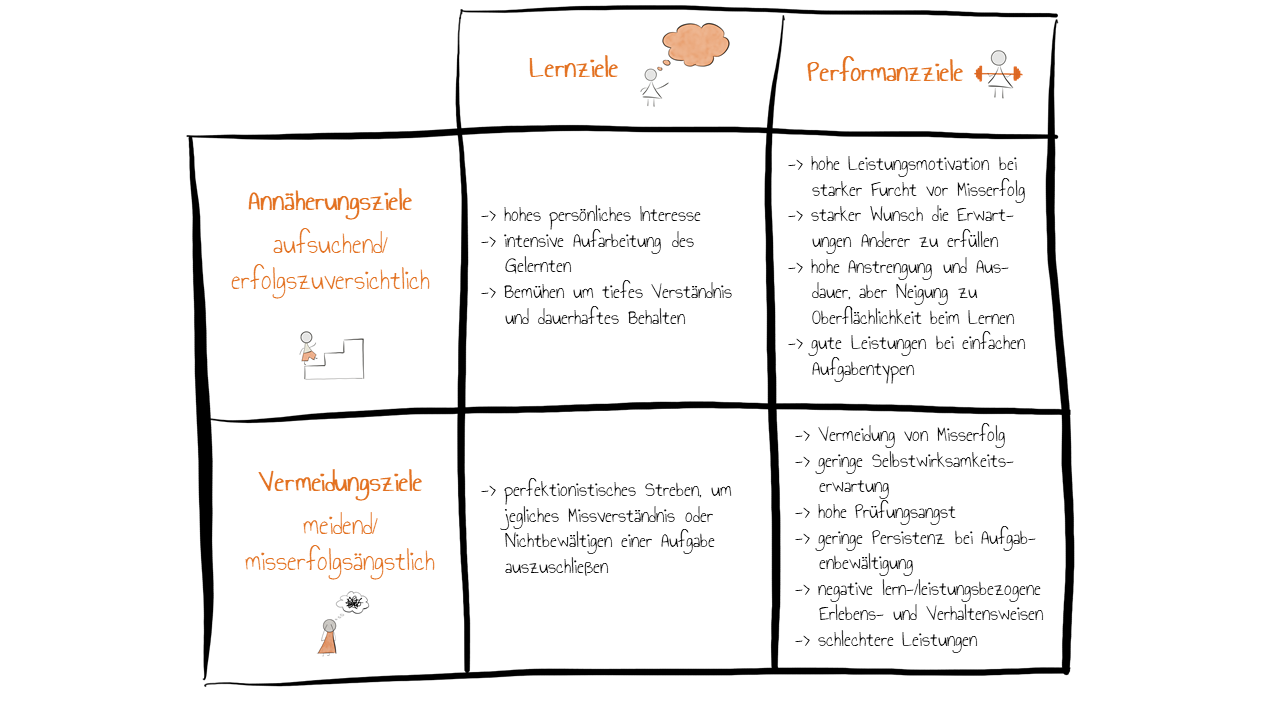 Lernziele
Performanzziele
Annäherungsziele
aufsuchend/
erfolgszuversichtlich
-> hohes persönliches Interesse
-> intensive Aufarbeitung des
Gelernten
-> Bemühen um tiefes Verständnis
und dauerhaftes Behalten
-> hohe Leistungsmotivation bei
starker Furcht vor Misserfolg
-> starker Wunsch die Erwart-
ungen Anderer zu erfüllen
-> hohe Anstrengung und Aus-
dauer, aber Neigung zu
Oberflächlichkeit beim Lernen
-> gute Leistungen bei einfachen
Aufgabentypen
Vermeidungsziele
meidend/
misserfolgsängstlich
-> perfektionistisches Streben, um
jegliches Missverständnis oder
Nichtbewältigen einer Aufgabe
auszuschließen
-> Vermeidung von Misserfolg
-> geringe Selbstwirksamkeits-
erwartung
-> hohe Prüfungsangst
-> geringe Persistenz bei Aufgab-
enbewältigung
-> negative lern-/leistungsbezogene
Erlebens- und Verhaltensweisen
-> schlechtere Leistungen